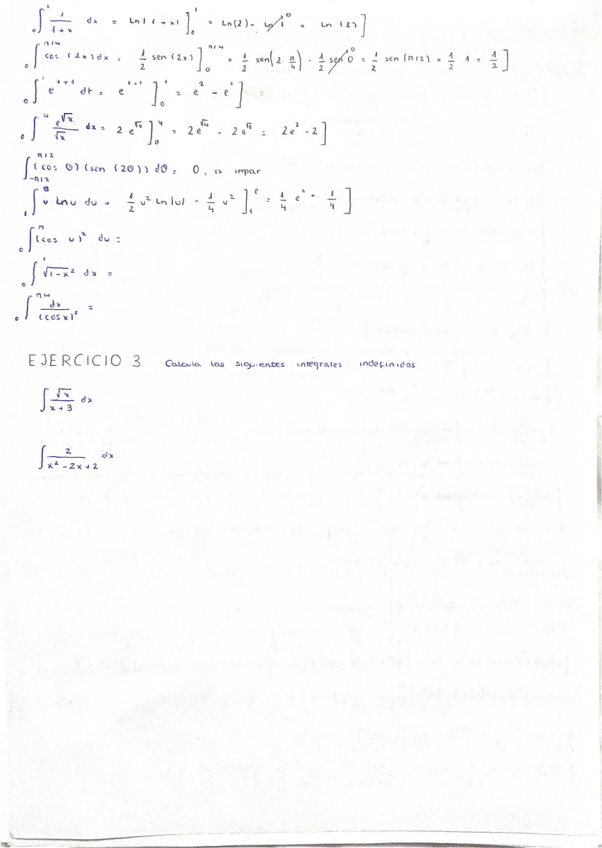 ₀∫¹ 1/(1+x) dx = Ln|1+x| ]₀¹ = Ln(2) - Ln 1⁰ = Ln (2) ]
₀∫^(π/4) cos (2x) dx = 1/2 sen (2x) ]₀^(π/4) = 1/2 sen(2·π/4) - 1/2 sen 0⁰ = 1/2 sen (π/2) = 1/2 · 1 = 1/2 ]
₀∫¹ e^(t+1) dt = e^(t+1) ]₀¹ = e² - e¹ ]
₀∫⁴ e^√x/√x dx = 2 e^√x ]₀⁴ = 2e^√4 - 2e^√0 = 2e² - 2 ]
∫_(-π/2)^(π/2) (cos θ) (sen (2θ)) dθ = 0, es impar
₁∫^e u Ln u du = 1/2 u² Ln|u| - 1/4 u² ]₁^e = 1/4 e² + 1/4 ]
₀∫^π (cos u)² du =
₀∫¹ √(1-x²) dx =
₀∫^(π/4) dx/(cos x)² =
EJERCICIO 3 Calcula las siguientes integrales indefinidas
∫ √x/(x+3) dx
∫ 2/(x²-2x+2) dx